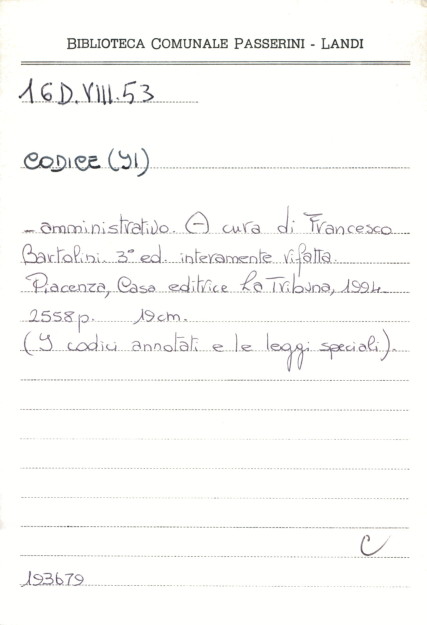 BIBLIOTECA COMUNALE PASSERINI - LANDI
16D.VIII.53
CODICE (Il)
- amministrativo. A cura di Francesco
Bartolini. 3° ed. interamente rifatta.
Piacenza, Casa editrice La Tribuna, 1994.
2558 p. 19 cm.
(I codici annotati e le leggi speciali).
C
193679